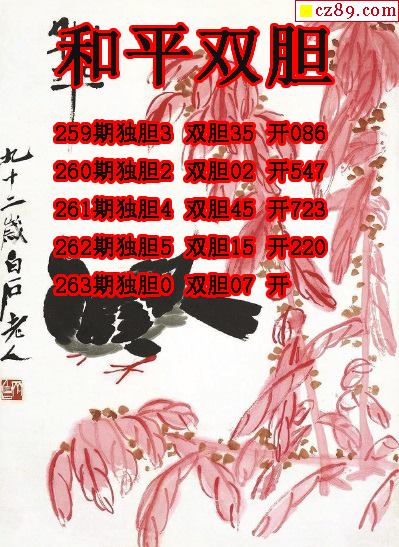 cz89.com
和平双胆
259期独胆3 双胆35 开086
260期独胆2 双胆02 开547
261期独胆4 双胆45 开723
262期独胆5 双胆15 开220
263期独胆0 双胆07 开
九十二岁白石老人